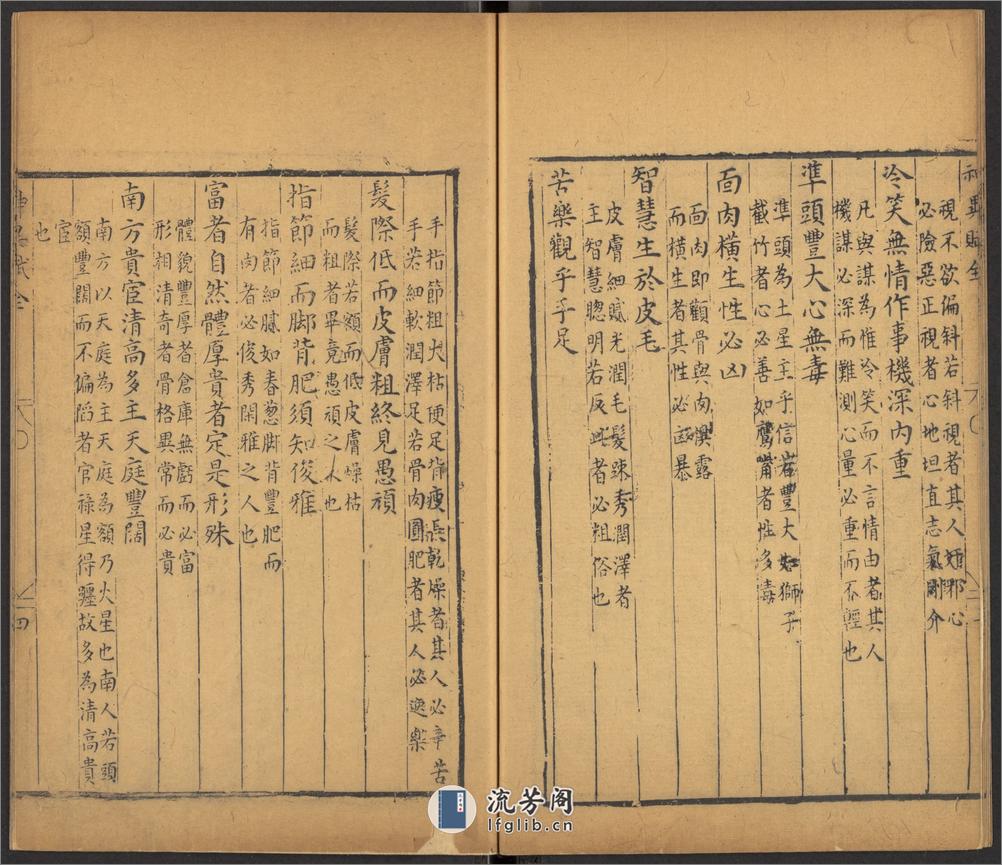 視不欲偏斜若斜視者其人奸邪心
必險惡正視者心地坦直志氣剛介
冷笑無情作事機深內重
凡與謀為惟冷笑而不言情由者其人
機謀必深而難測心量必重而不輕也
準頭豐大心無毒
準頭為土星主乎信若豐大如獅子
截竹者心必善如鷹嘴者性多毒
面肉橫生性必凶
面肉即顴骨與肉俱露
而橫生者其性必凶暴
智慧生於皮毛
皮膚細膩光潤毛髮疎秀潤澤者
主智慧聰明若反此者必粗俗也
苦樂觀乎手足
手指節粗大枯硬足背瘦長乾燥者其人必辛苦
手若細軟潤澤足若骨肉圓肥者其人必逸樂
髮際低而皮膚粗終見愚頑
髮際若額而低皮膚燥枯
而粗者畢竟愚頑之人也
指節細而脚背肥須知俊雅
指節細膩如春葱脚背豐肥而
有肉者必俊秀閑雅之人也
富者自然體厚貴者定是形殊
體貌豐厚者倉庫無虧而必富
形相清奇者骨格異常而必貴
南方貴宦清高多主天庭豐闊
南方以天庭為主天庭為額乃火星也南人若頭
額豐闊而不偏陷者官祿星得躔故多為清高貴
宦
也
四
流芳阁
lfglib.cn